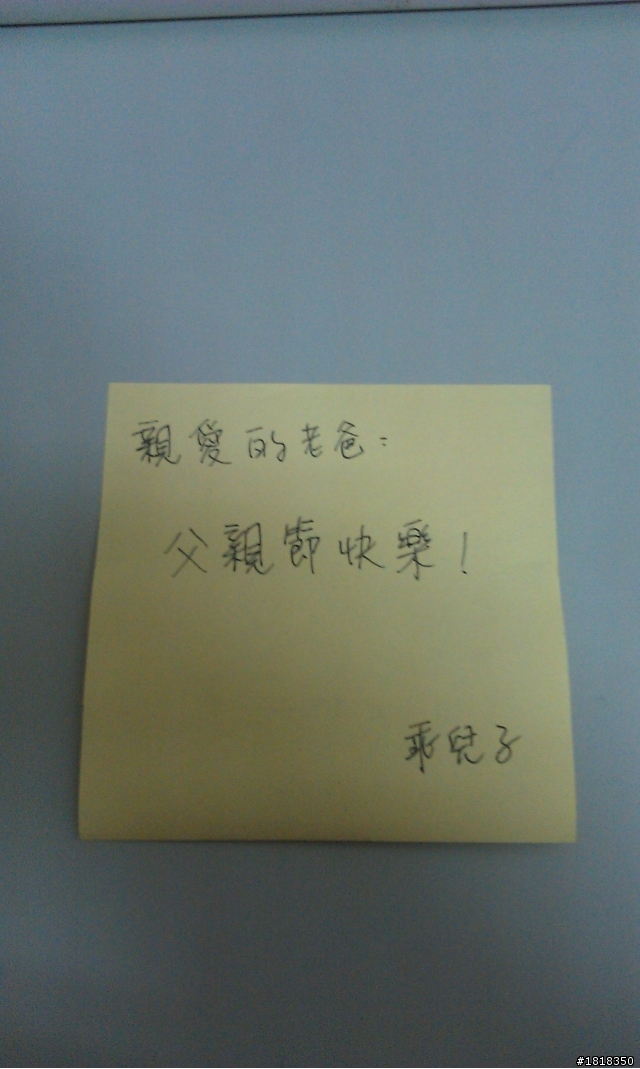 親愛的老爸：
父親節快樂！
乖兒子
#1818350